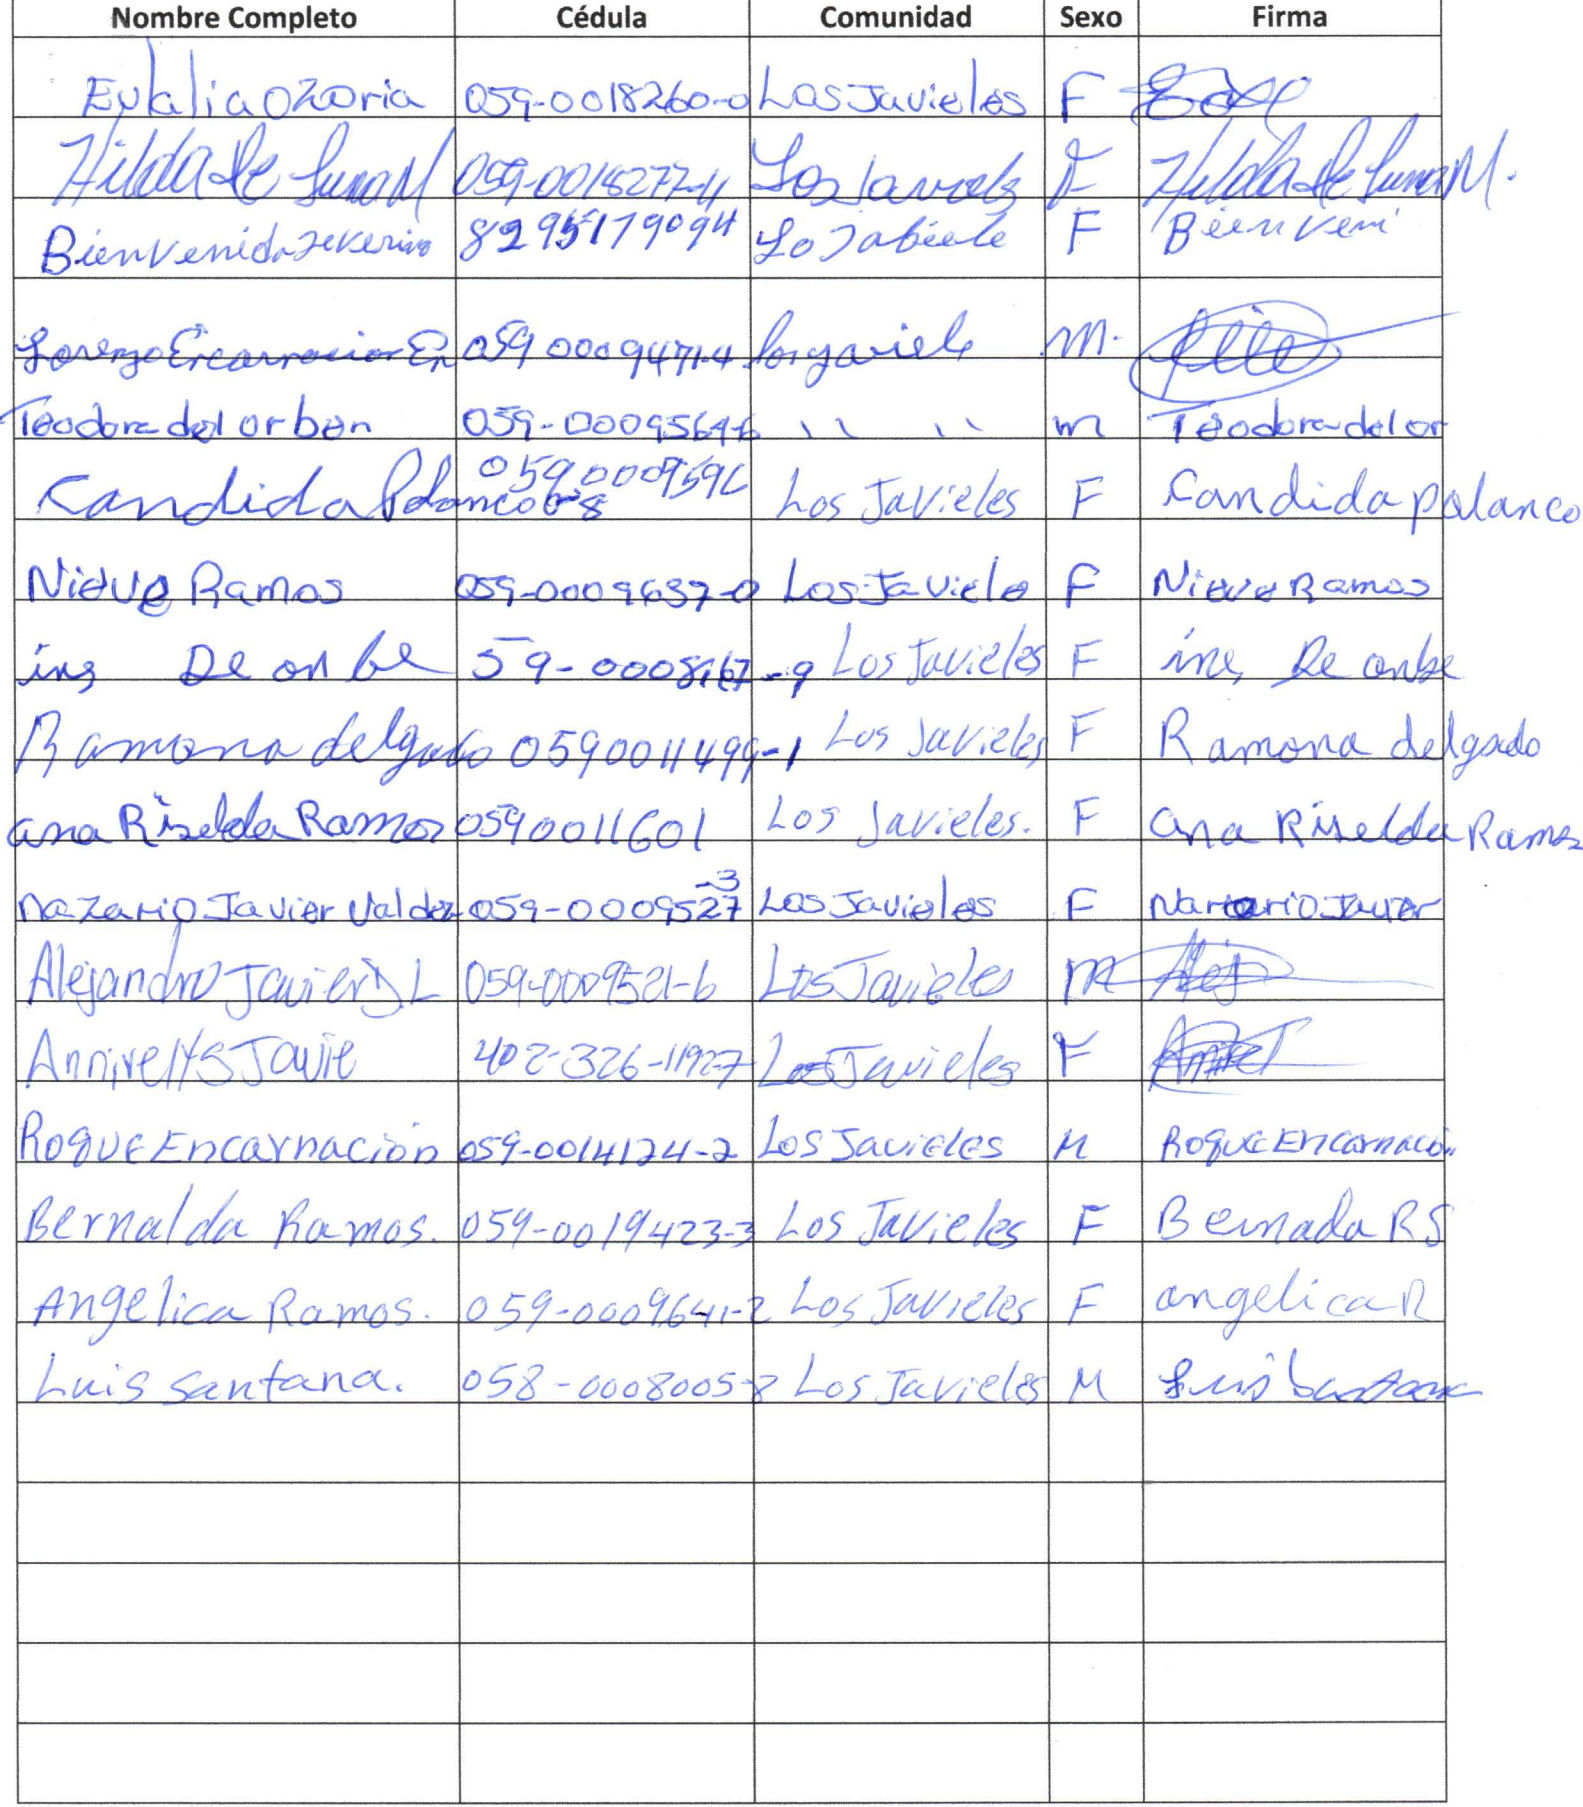 Nombre Completo Cédula Comunidad Sexo Firma
Eulalia Ozoria 059-0018260-0 Los Javieles F
Hilda De Luna M 059-0018277-4 Los Javiels F Hilda de Luna M.
Bienvenida Severino 8295179094 Lo Jabiele F Bienveni
Lorenzo Encarnacion En 059 0009471-4 los gaviels M.
Teodora del orben 059-0009564-6 '' '' m Teodora del or
Candida Polanco 059 0009596 Los Javieles F Candida polanco
Nieve Ramos 059-0009637-0 Los Javiele F Nieve Ramos
ins De on be 59-0008167-9 Los Javieles F ine, De onbe
Ramona delgado 0590011499-1 Los Javieles F Ramona delgado
ana Riselda Ramos 0590011601 Los Javieles. F ana Riselda Ramos
nazario Javier Valdez 059-0009527-3 Los Javieles F Nazario Javier
Alejandro Javier D L 059-0009521-6 Los Javieles m Alej
Annivellys Javie 402-326-11927 Los Javieles F
Roque Encarnación 059-0014124-2 Los Javieles M Roque Encarnación
Bernalda Ramos. 059-0019423-3 Los Javieles F Bernada RS
Angelica Ramos. 059-0009641-2 Los Javieles F angelica R
Luis santana. 058-0008005-8 Los Javieles M Luis Santana